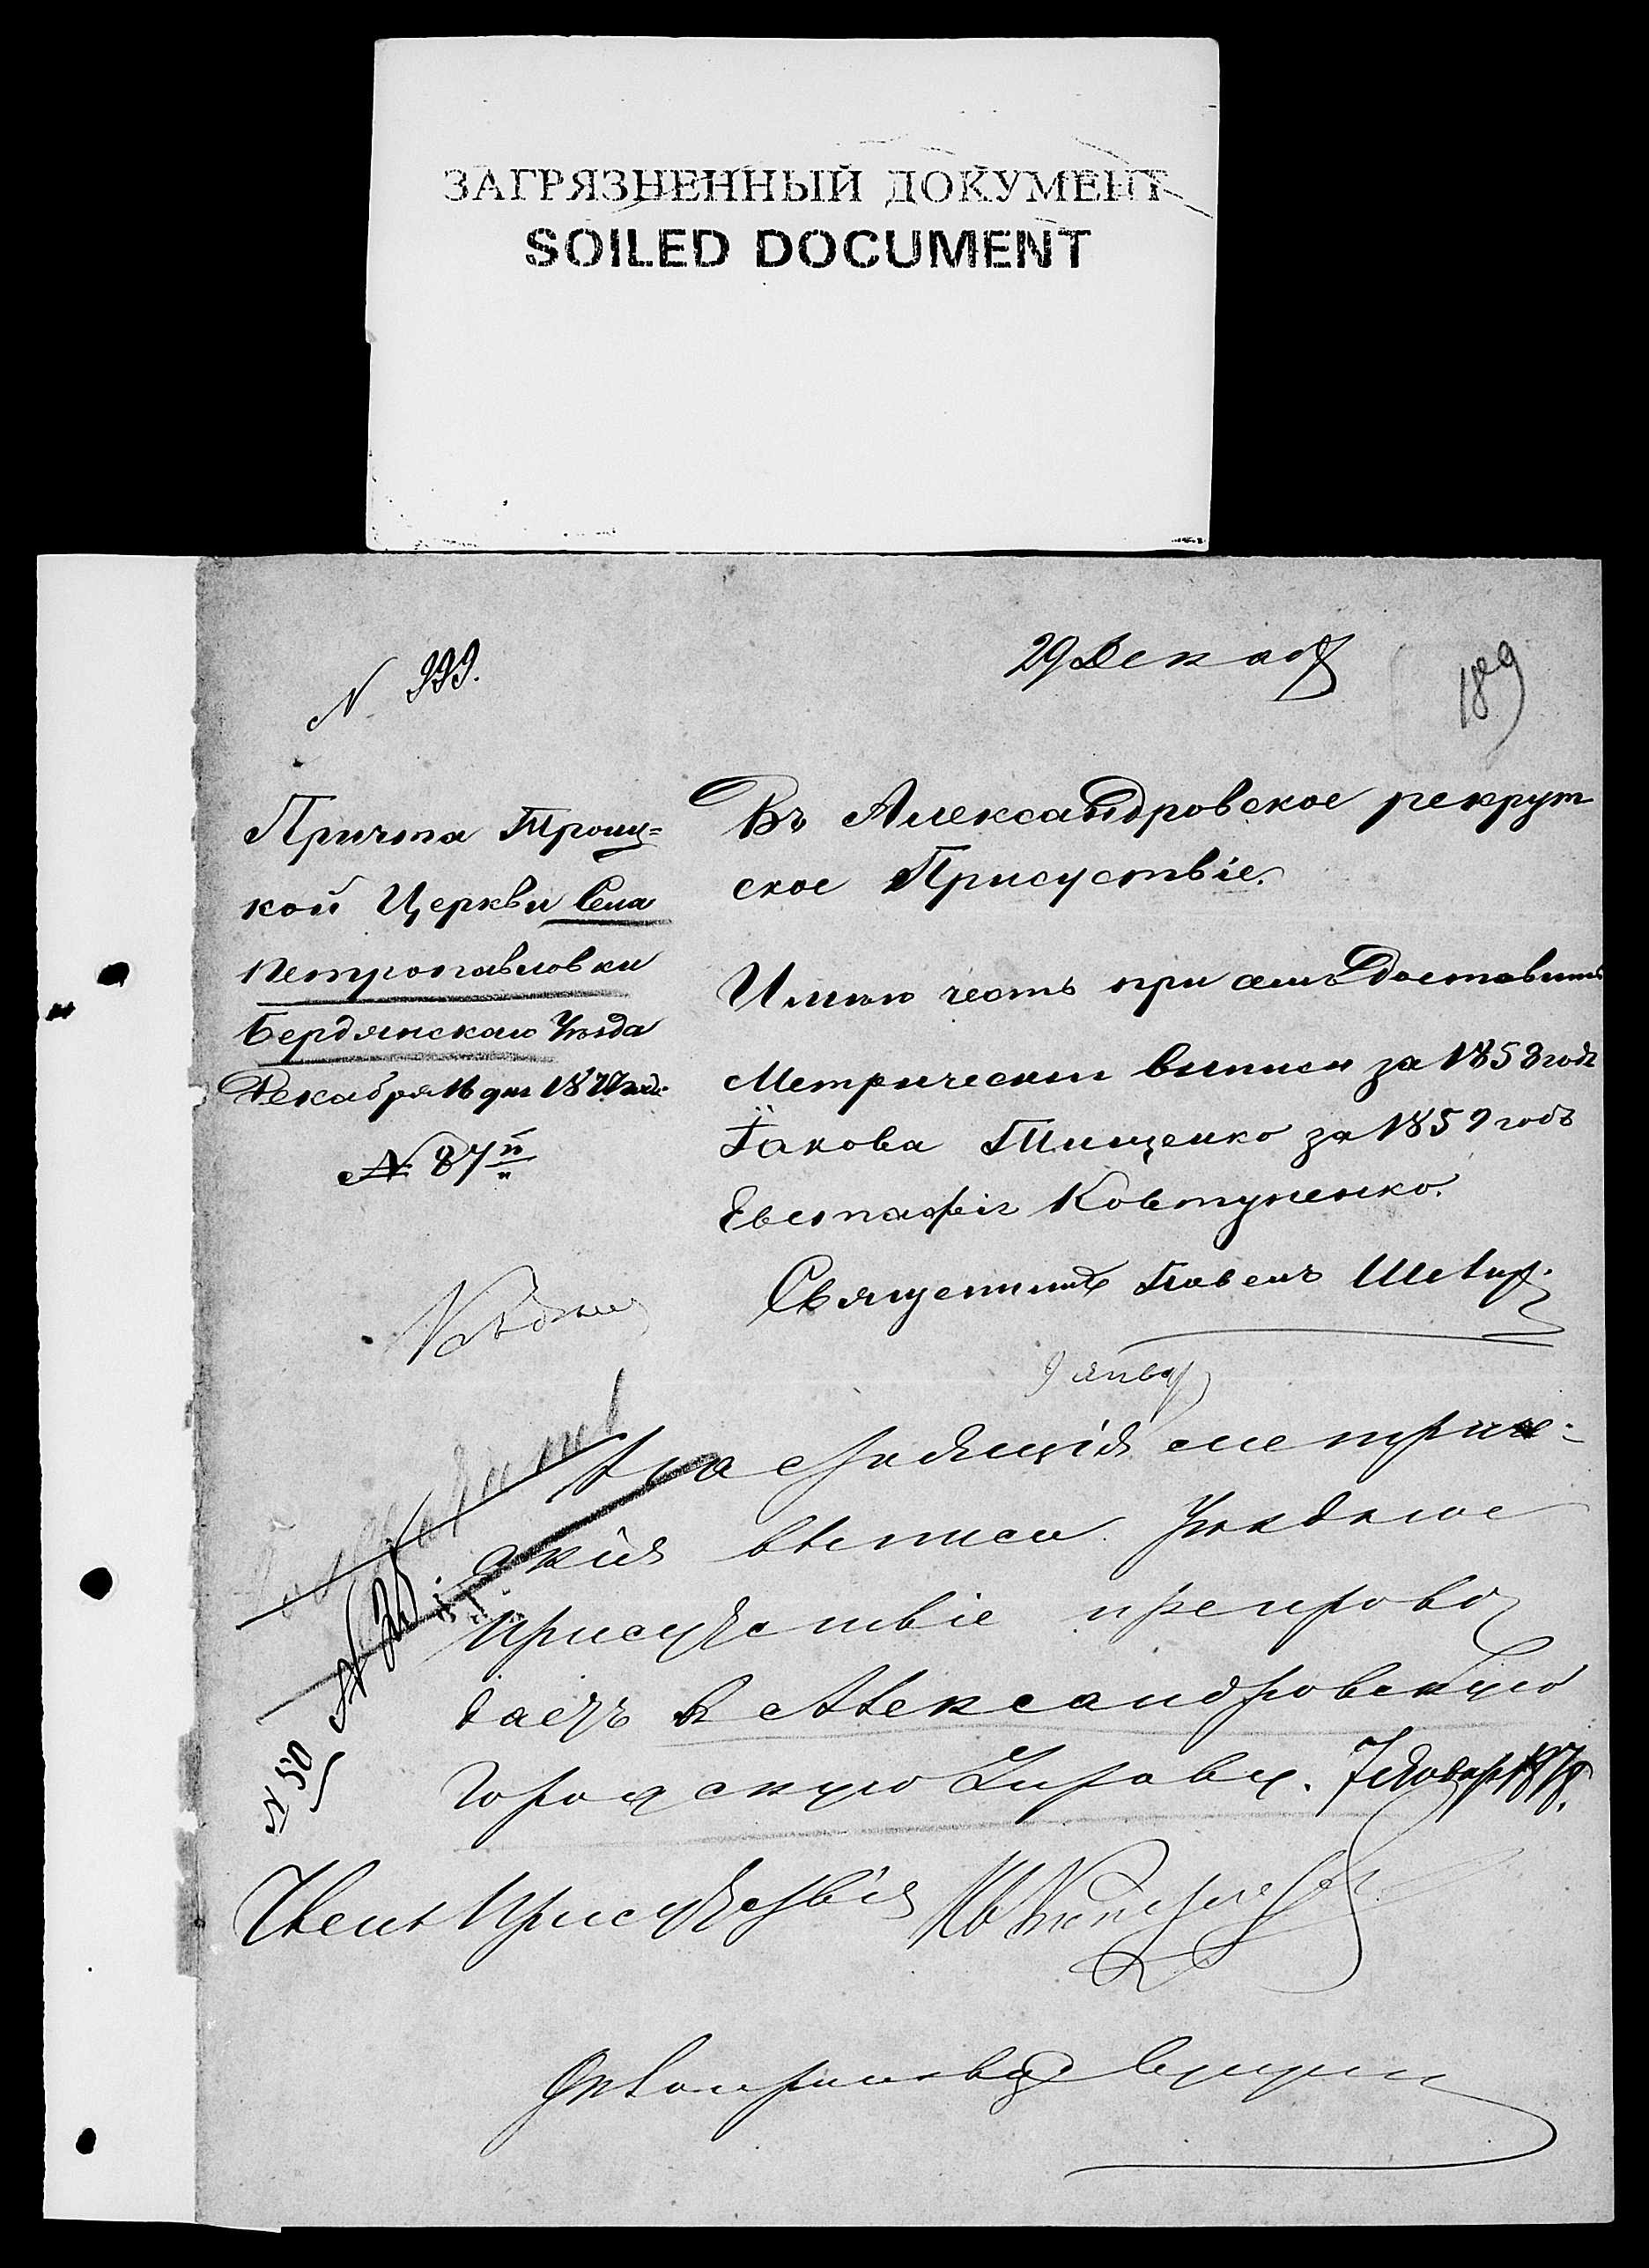 ЗАГРЯЗНЕННЫЙ ДОКУМЕНТ
SOILED DOCUMENT
N 999.
29 Декаб
189
Причта Троиц=
кой Церкви Села
Петропавловки
Бердянскаго Уѣзда
Декабря 16 дня 1877 года
№ 87й
Въ Александровское рекрут
ское Присуствіе.
Имѣю честь при семъ доставить
Метрически выписи за 1858 годъ
Іакова Тищенко за 1859 годъ
Евстафія Ковтуненко.
Священникъ Павелъ
Къ дѣлу
9 январ
Настоящія метриче-
скія выписи Уѣздное
Присутствіе препрово
даетъ в Александровскую
Городскую Управу. 7 Январ 1878.
N 50
Членъ Присутствія
Дѣлопроизвод